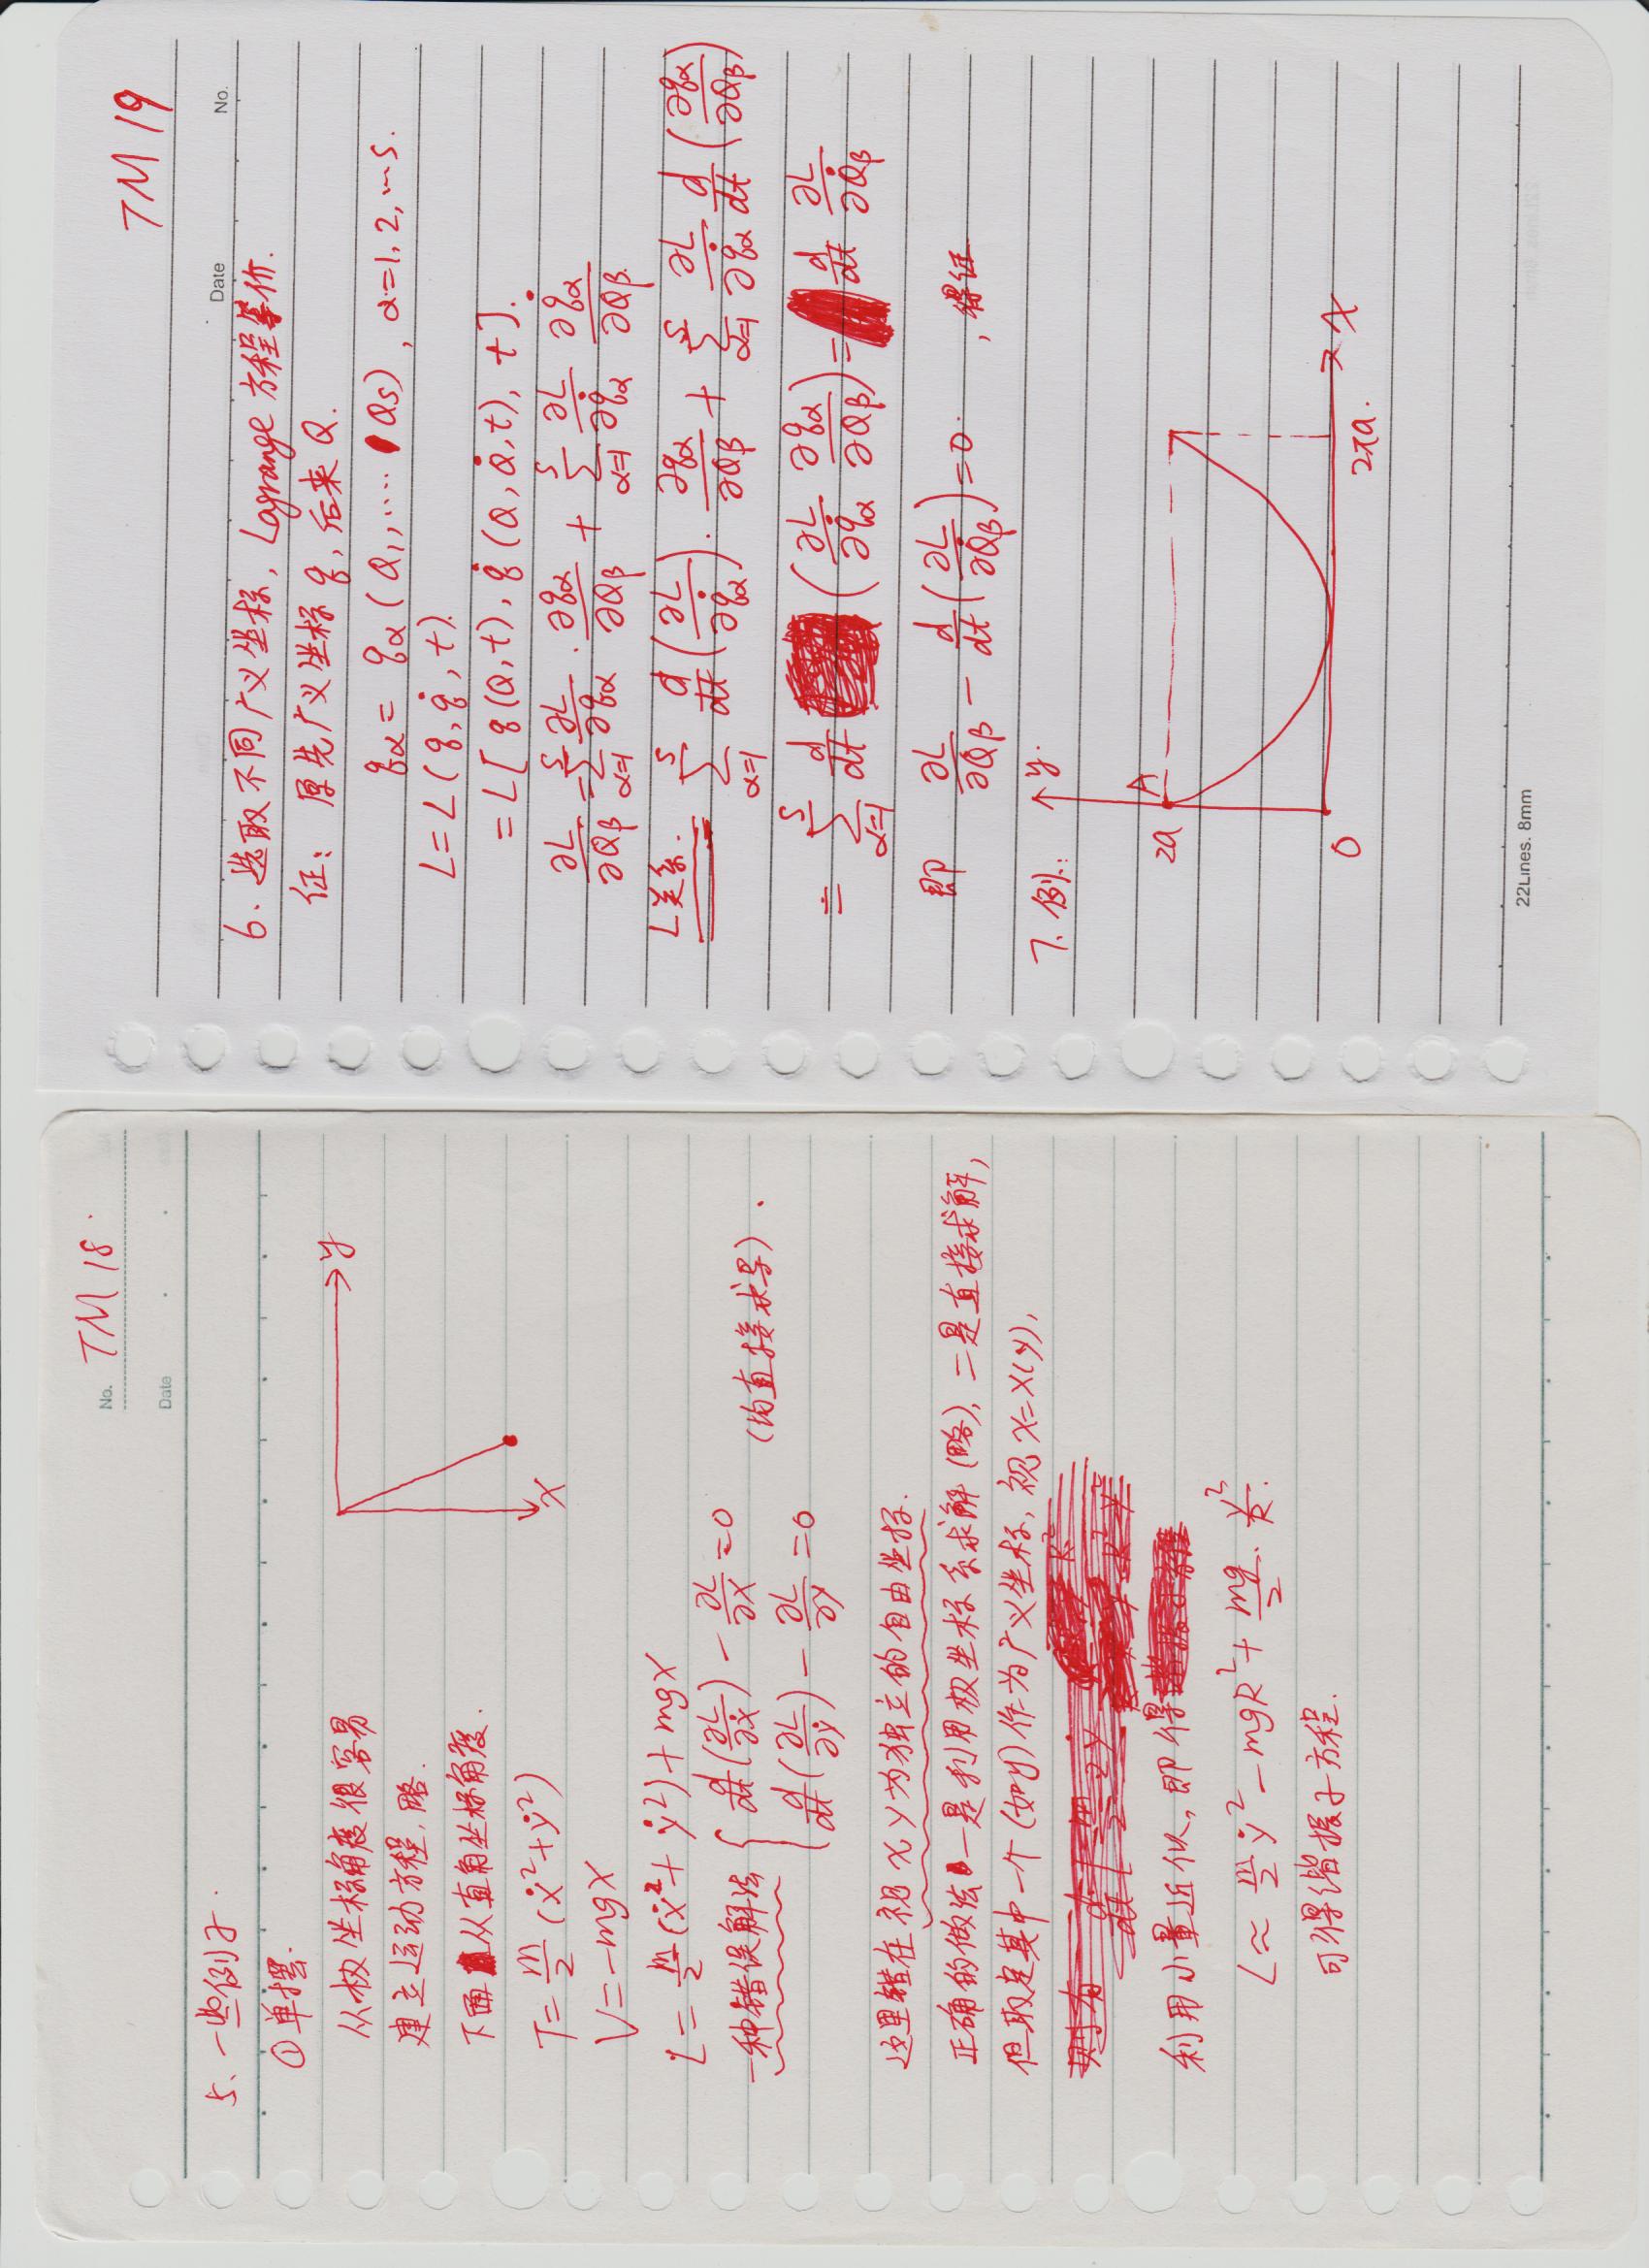 No. TM 18.
Date
5、一些例子.
①单摆.
从极坐标角度很容易
建立运动方程,略.
下面从直角坐标角度.
y
x
T=m/2 (ẋ²+ẏ²)
V=-mgx
L=m/2 (ẋ²+ẏ²)+mgx
一种错误解法 { d/dt(∂L/∂ẋ) - ∂L/∂x =0
d/dt(∂L/∂ẏ) - ∂L/∂y =0 (均直接求导).
这里错在视 x y 为独立的自由坐标.
正确的做法一是利用极坐标系求解(略),二是直接求解,
但取定其中一个(如y)作为广义坐标,视 x=x(y),
利用小量近似,即得
L≈ m/2 ẏ² - mgR² + mg/2 · y²/R.
可得谐振子方程.
TM 19
Date No.
6. 选取不同广义坐标, Lagrange 方程等价.
证: 原先广义坐标 q, 后来 Q.
qα = qα (Q₁,.... Qs), α=1,2,...s.
L=L(q,q̇,t).
=L[q(Q,t),q̇(Q,Q̇,t),t].
∂L/∂Qβ = Σ(α=1→s) ∂L/∂qα · ∂qα/∂Qβ + Σ(α=1→s) ∂L/∂q̇α ∂q̇α/∂Qβ.
L关系. Σ(α=1→s) d/dt(∂L/∂q̇α) · ∂qα/∂Qβ + Σ(α=1→s) ∂L/∂q̇α d/dt(∂qα/∂Qβ)
= Σ(α=1→s) d/dt (∂L/∂q̇α ∂qα/∂Qβ) = d/dt ∂L/∂Q̇β
即 ∂L/∂Qβ - d/dt(∂L/∂Q̇β)=0. ,得证
7. 例:
y.
2a A
O 2πa. x
22Lines. 8mm